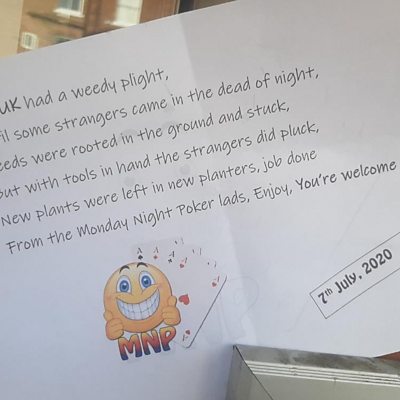 UK had a weedy plight,
il some strangers came in the dead of night,
eeds were rooted in the ground and stuck,
out with tools in hand the strangers did pluck,
New plants were left in new planters, job done
From the Monday Night Poker lads, Enjoy, You're welcome
7th July, 2020
A A A A A
MNP